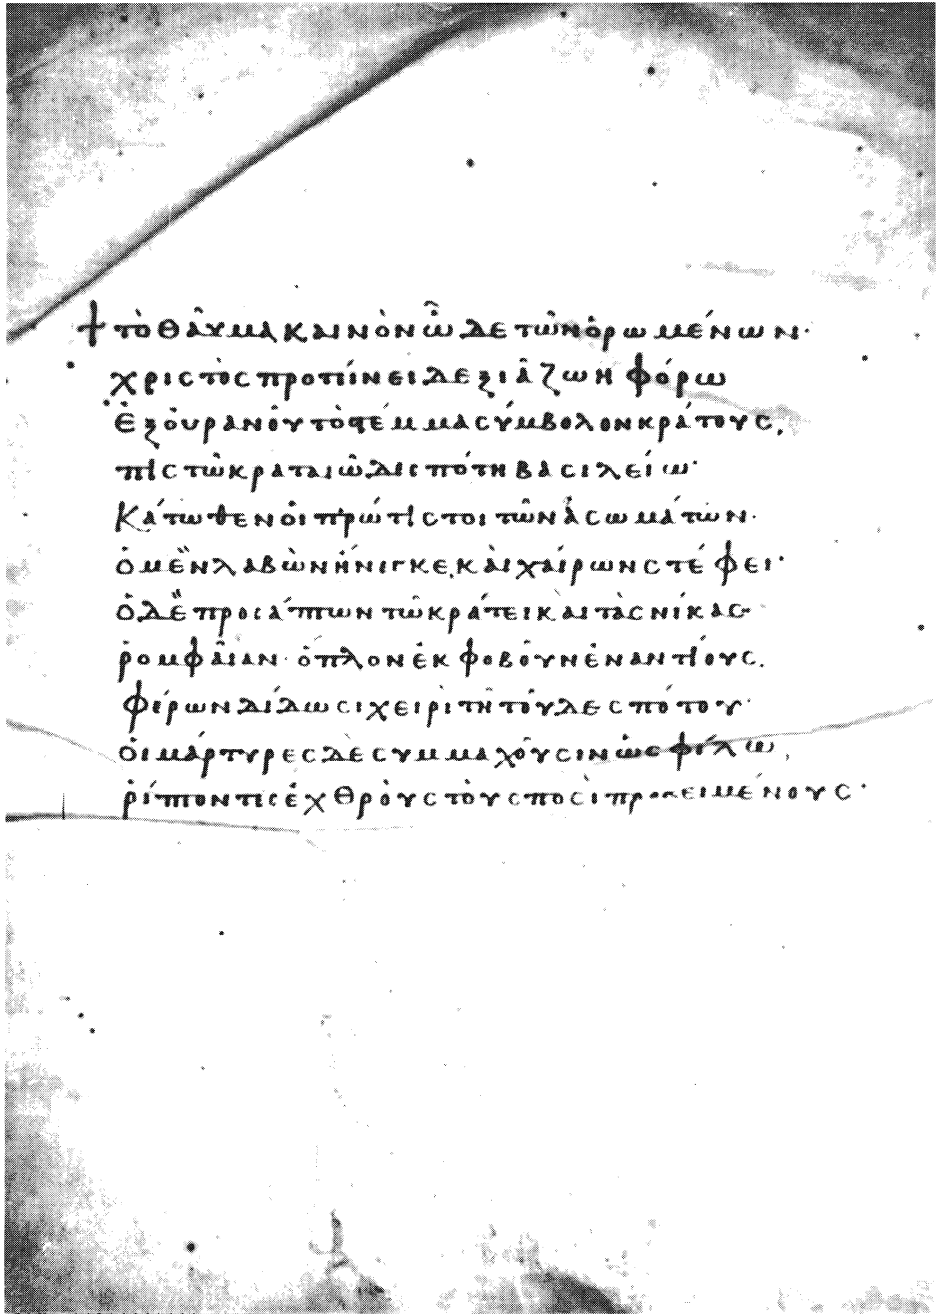 † τὸ θαῦμα καινὸν ὧδε τῶν ὁρωμένων·
χριστὸς προτείνει δεξιᾶ ζωηφόρω
ἐξ οὐρανοῦ τὸ στέμμα σύμβολον κράτους,
πιστῶ κραταιῶ δεσπότη βασιλείω·
Κάτωθεν οἱ πρώτιστοι τῶν ἀσωμάτων·
ὁ μὲν λαβὼν ἤνεγκε, καὶ χαίρων στέφει·
ὁ δὲ προσάπτων τῶ κράτει καὶ τὰς νίκας·
ῥομφαίαν· ὅπλον ἐκφοβοῦν ἐναντίους.
φέρων δίδωσι χειρὶ τῆ τοῦ δεσπότου·
οἱ μάρτυρες δὲ συμμαχοῦσιν ὡς φίλω,
ῥίπτοντες ἐχθροὺς τοὺς ποσὶ προκειμένους·